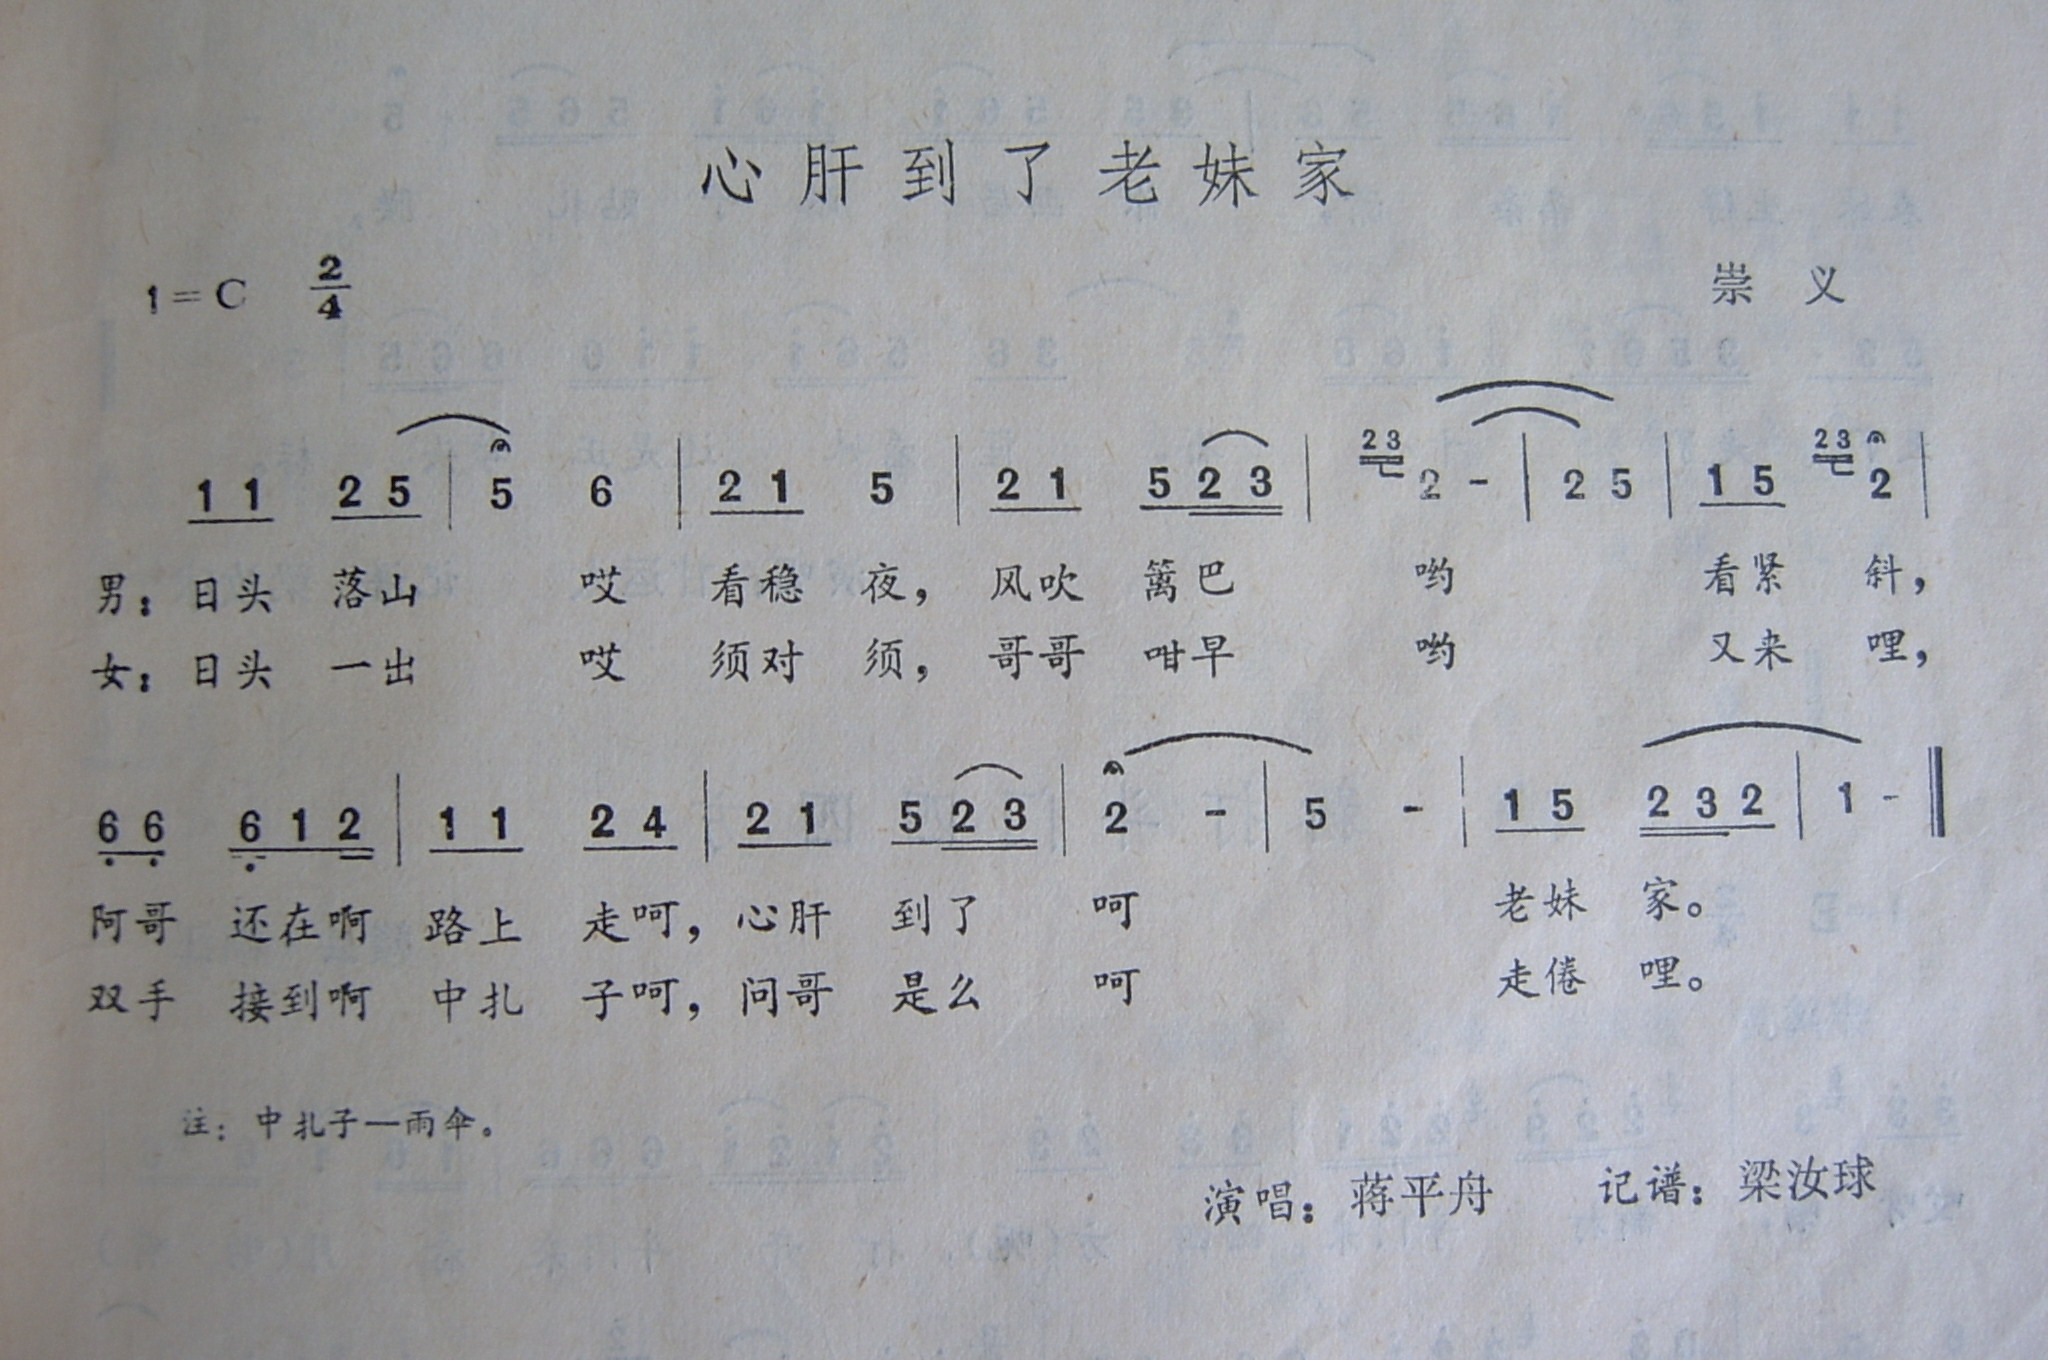 心肝到了老妹家
1=C 2/4 崇义
1 1 2 5 | 5 6 | 2 1 5 | 2 1 5 2 3 | 23 2 - | 2 5 | 1 5 23 2 |
男：日头 落山 哎 看稳 夜，风吹 篱巴 哟 看紧 斜，
女：日头 一出 哎 须对 须，哥哥 咁早 哟 又来 哩，
6 6 6 1 2 | 1 1 2 4 | 2 1 5 2 3 | 2 - | 5 - | 1 5 2 3 2 | 1 - ‖
阿哥 还在啊 路上 走呵，心肝 到了 呵 老妹 家。
双手 接到啊 中扎 子呵，问哥 是么 呵 走倦 哩。
注：中扎子—雨伞。
演唱：蒋平舟 记谱：梁汝球